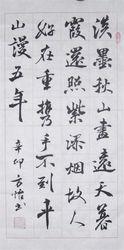 淡墨秋山畫遠天暮
霞還照紫添烟故人
好在重攜手不到平
山謾五年
辛卯方怡书